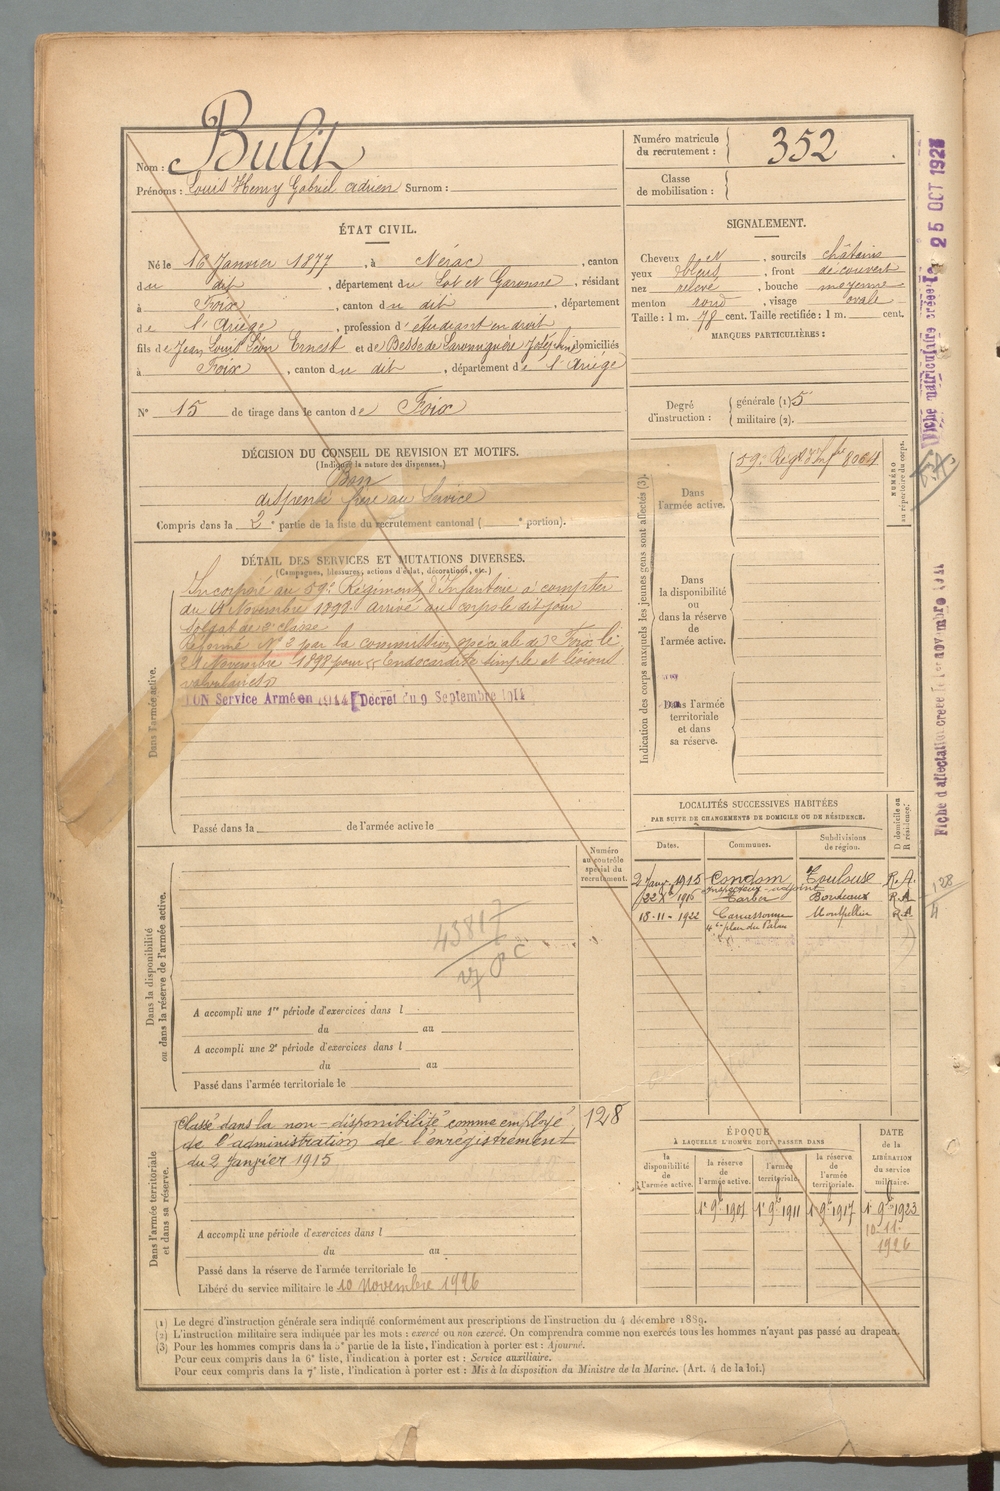 Nom : Bulit
Prénoms : Louis Henry Gabriel Adrien Surnom :
Numéro matricule du recrutement : 352
Classe de mobilisation :
ÉTAT CIVIL.
Né le 16 Janvier 1877, à Nérac, canton
du dit, département du Lot et Garonne, résidant
à Foix, canton du dit, département
de l'Ariège, profession d'étudiant en droit
fils de Jean Louis Léon Ernest et de Besse de Laromiguière Joséphine domiciliés
à Foix, canton du dit, département de l'Ariège
N° 15 de tirage dans le canton de Foix
SIGNALEMENT.
Cheveux et, sourcils châtains
yeux bleus, front découvert
nez relevé, bouche moyenne
menton rond, visage ovale
Taille : 1 m. 78 cent. Taille rectifiée : 1 m. cent.
MARQUES PARTICULIÈRES :
Degré d'instruction : générale (1) 5
militaire (2).
DÉCISION DU CONSEIL DE REVISION ET MOTIFS.
(Indiquer la nature des dispenses.)
Bon
dispensé frère au service
Compris dans la 2e partie de la liste du recrutement cantonal ( e portion).
DÉTAIL DES SERVICES ET MUTATIONS DIVERSES.
(Campagnes, blessures, actions d'éclat, décorations, etc.)
Dans l'armée active.
Incorporé au 59e Régiment d'Infanterie à compter
du Novembre 1898 arrivé au corps le dit jour
soldat de 2e classe
Réformé N° 2 par la commission spéciale de Foix le
Novembre 1898 pour "Endocardite simple et lésions
valvulaires"
BON Service Armé en 1914 Décret du 9 Septembre 1914
Passé dans la de l'armée active le
Indication des corps auxquels les jeunes gens sont affectés (3).
NUMÉRO au répertoire du corps.
Dans l'armée active.
59e Régt d'Infie 8064
Dans la disponibilité ou dans la réserve de l'armée active.
Dans l'armée territoriale et dans sa réserve.
LOCALITÉS SUCCESSIVES HABITÉES
PAR SUITE DE CHANGEMENTS DE DOMICILE OU DE RÉSIDENCE.
Dates. Communes. Subdivisions de région. D domicile ou R résidence.
2 Janv. 1915 Condom Toulouse R.A.
inspecteur-adjoint
22 Xbre 1915 Tarbes Bordeaux R.A.
18-11-1922 Carcassonne Montpellier R.A
plan du Palais
Numéro au contrôle spécial du recrutement.
Dans la disponibilité ou dans la réserve de l'armée active.
43817
A accompli une 1re période d'exercices dans l
du au
A accompli une 2e période d'exercices dans l
du au
Passé dans l'armée territoriale le
Dans l'armée territoriale et dans sa réserve.
Classé dans la non-disponibilité comme employé 128
de l'administration de l'enregistrement
du 2 Janvier 1915
A accompli une période d'exercices dans l
du au
Passé dans la réserve de l'armée territoriale le
Libéré du service militaire le 10 Novembre 1926
ÉPOQUE
A LAQUELLE L'HOMME DOIT PASSER DANS
la disponibilité de l'armée active.
la réserve de l'armée active.
l'armée territoriale.
la réserve de l'armée territoriale.
DATE de la LIBÉRATION du service militaire.
1er 9bre 1901 1er 9bre 1911 1er 9bre 1917 1er 9bre 1923
10-11-1926
(1) Le degré d'instruction générale sera indiqué conformément aux prescriptions de l'instruction du 4 décembre 1889.
(2) L'instruction militaire sera indiquée par les mots : exercé ou non exercé. On comprendra comme non exercés tous les hommes n'ayant pas passé au drapeau.
(3) Pour les hommes compris dans la 5e partie de la liste, l'indication à porter est : Ajourné.
Pour ceux compris dans la 6e liste, l'indication à porter est : Service auxiliaire.
Pour ceux compris dans la 7e liste, l'indication à porter est : Mis à la disposition du Ministre de la Marine. (Art. 4 de la loi.)
Fiche matriculaire créée le 25 OCT 1928
Fiche d'affectation créée le 1er novembre
128